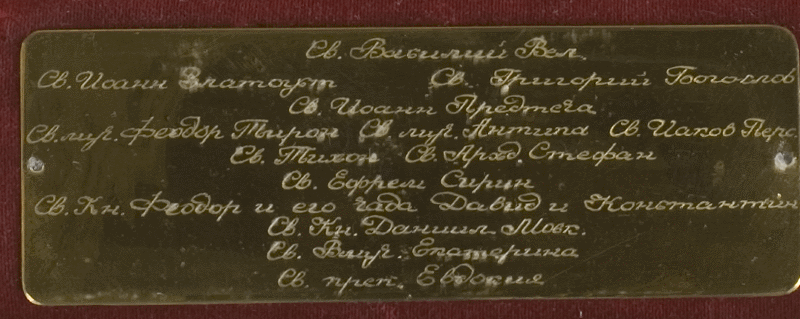 Св. Василий Вел.
Св. Иоанн Златоуст Св. Григорий Богослов
Св. Иоанн Предтеча
Св. муч. Феодор Тирон Св. муч. Антипа Св. Иаков Перс.
Св. Тихон Св. Архд. Стефан
Св. Ефрем Сирин
Св. Кн. Феодор и его чада Давид и Константин
Св. Кн. Даниил Моск.
Св. Вмуч. Екатерина
Св. преп. Евдокия